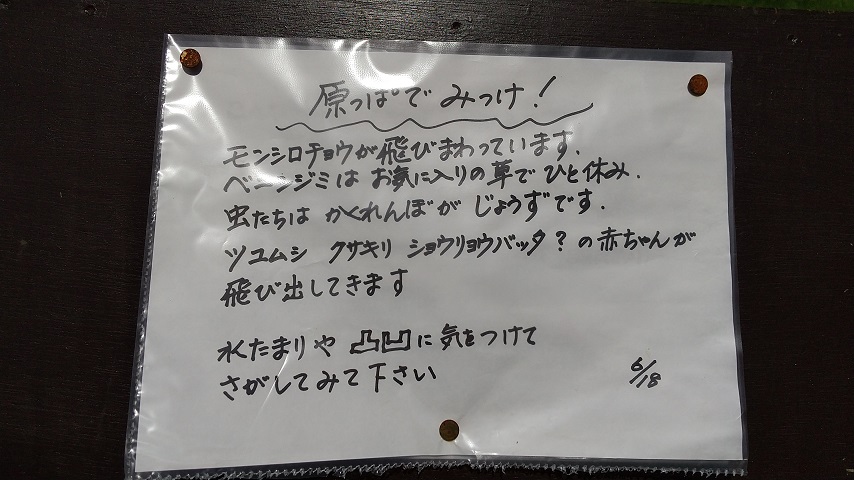 原っぱで みっけ!
モンシロチョウが飛びまわっています.
ベニシジミは お気に入りの草で ひと休み.
虫たちは かくれんぼが じょうずです.
ツユムシ クサキリ ショウリョウバッタ?の赤ちゃんが
飛び出してきます
水たまりや 凸凹に気をつけて
さがしてみて下さい
6/18